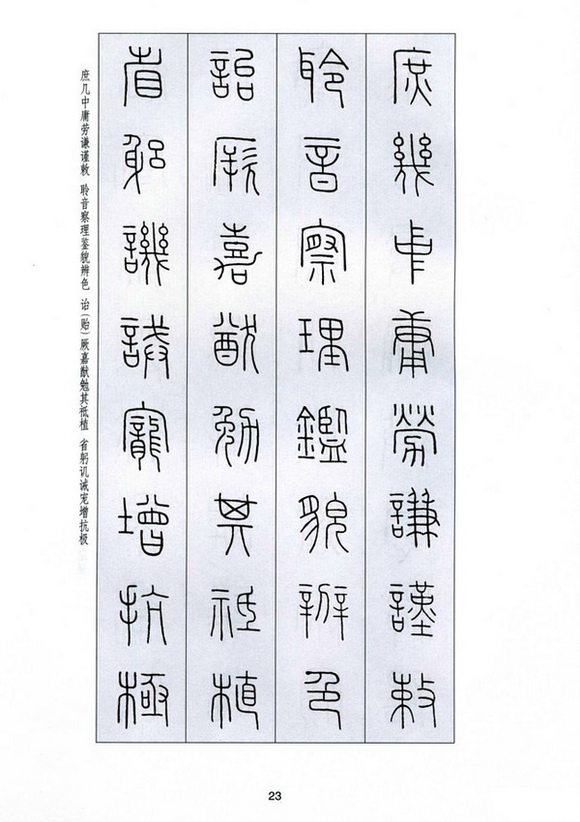 庶幾中庸勞謙謹敕
聆音察理鑑貌辨色
詒厥嘉猷勉其祗植
省躬譏誡寵增抗極
庶几中庸劳谦谨敕 聆音察理鉴貌辨色 诒(贻)厥嘉猷勉其祗植 省躬讥诫宠增抗极
23